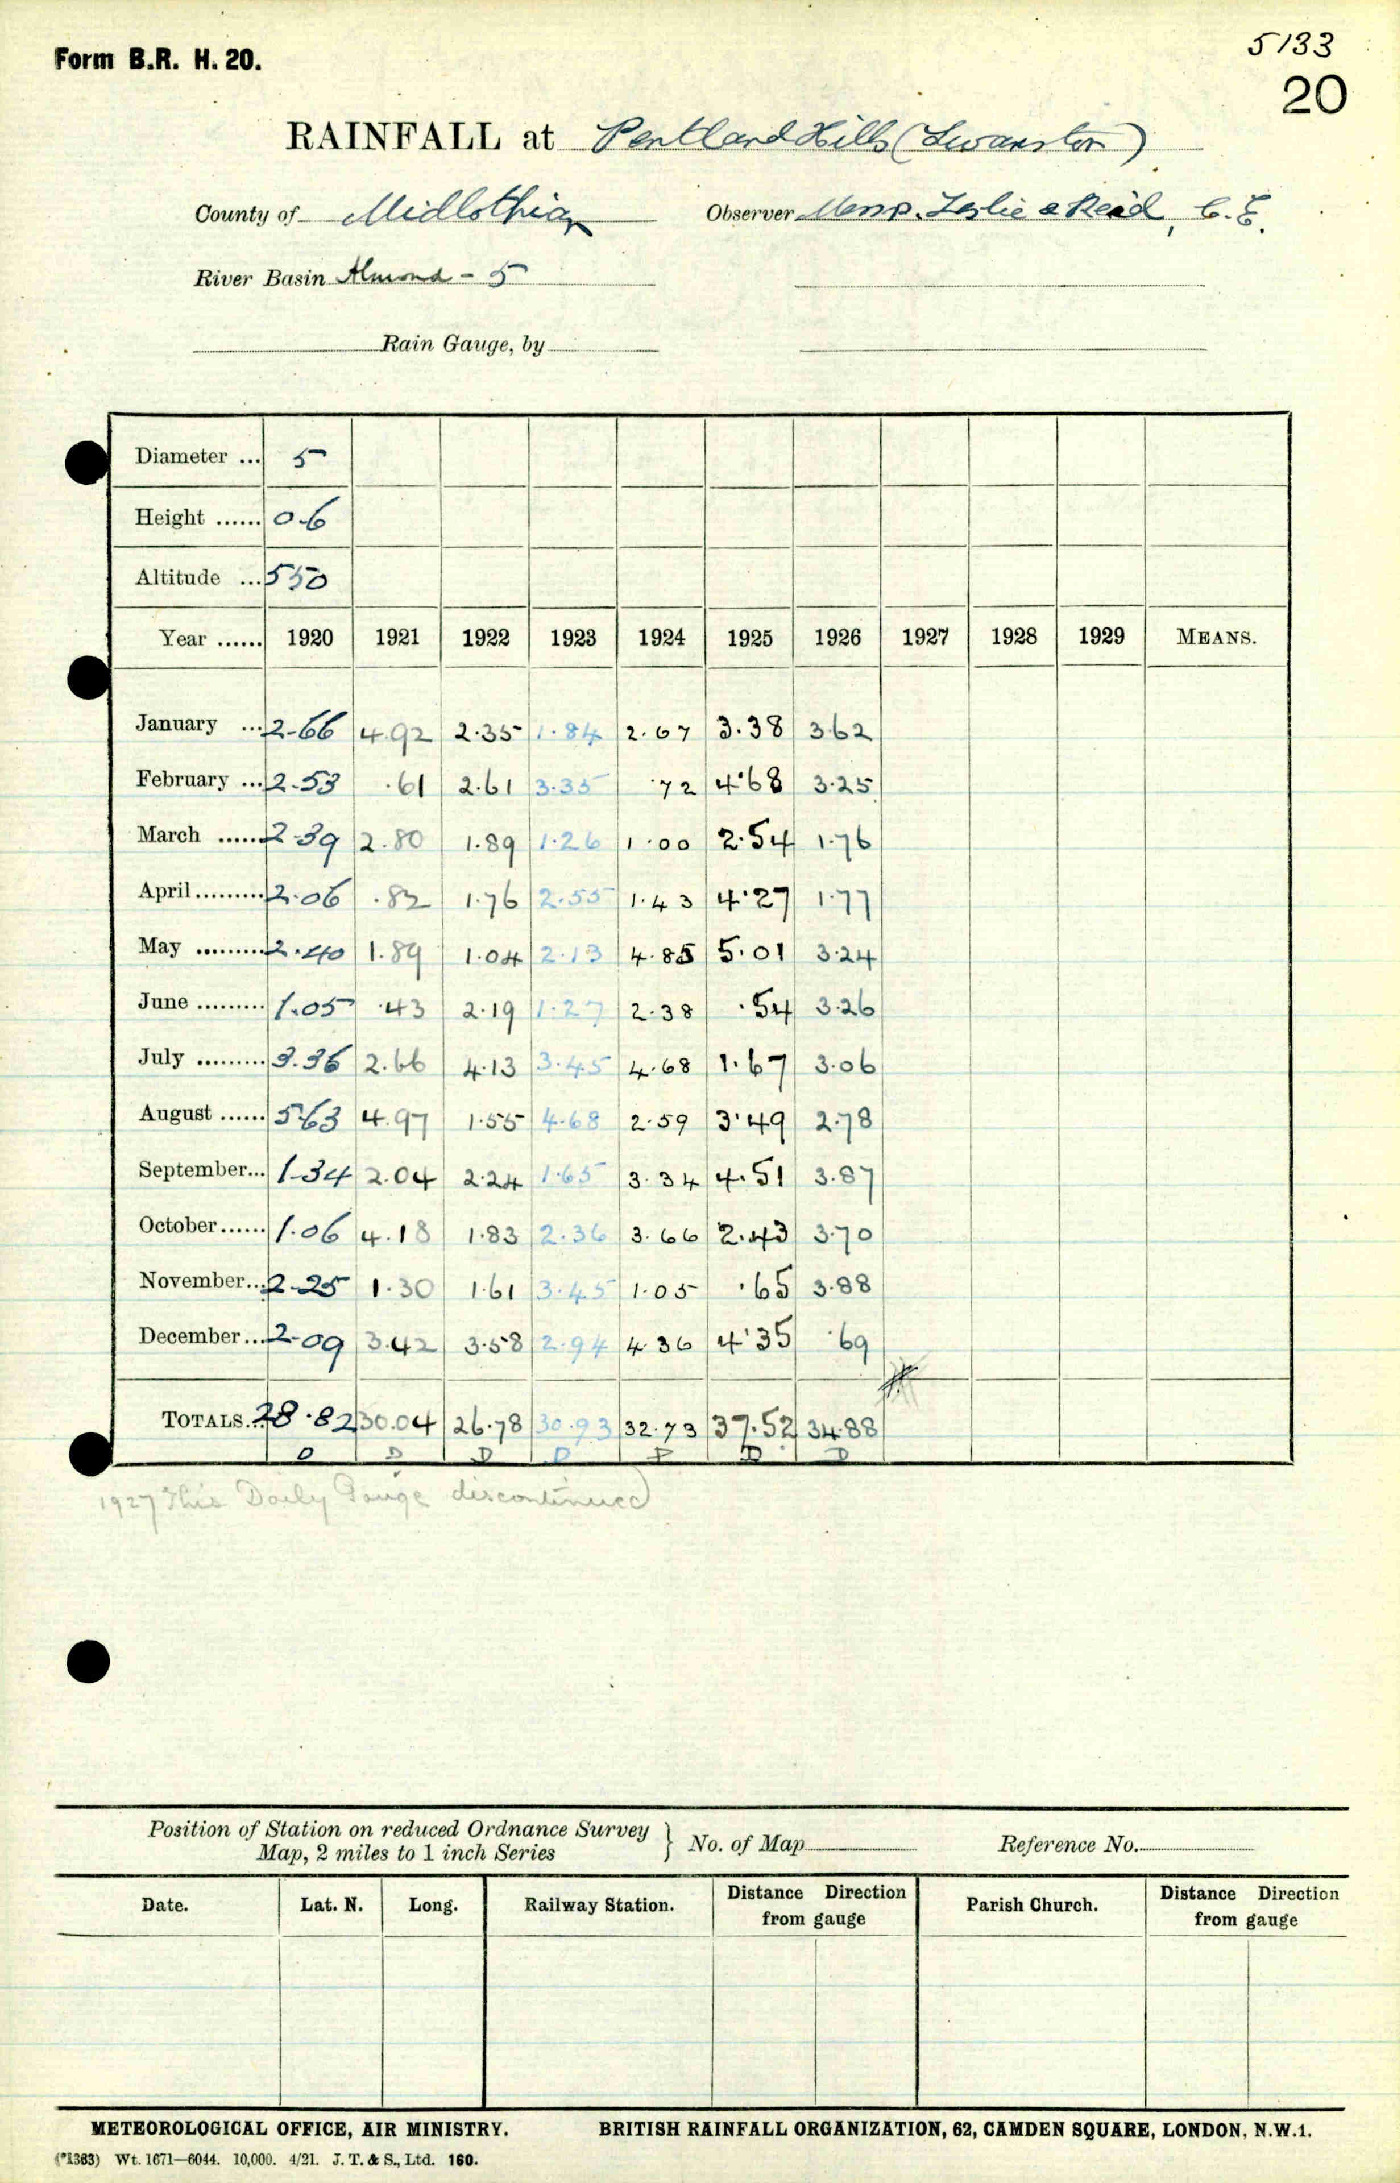 5133
Form B.R. H. 20.
20
RAINFALL at Pentland Hills (Swanston)
County of Midlothian Observer Messrs. Leslie & Reid, C.E.
River Basin Almond - 5
Rain Gauge, by
Diameter ... 5
Height ...... 0.6
Altitude ... 550
Year ...... 1920 1921 1922 1923 1924 1925 1926 1927 1928 1929 MEANS.
January ... 2.66 4.92 2.35 1.84 2.67 3.38 3.62
February ... 2.53 .61 2.61 3.35 .72 4.68 3.25
March ...... 2.39 2.80 1.89 1.26 1.00 2.54 1.76
April ......... 2.06 .82 1.76 2.55 1.43 4.27 1.77
May ......... 2.40 1.89 1.04 2.13 4.85 5.01 3.24
June ......... 1.05 .43 2.19 1.27 2.38 .54 3.26
July ......... 3.36 2.66 4.13 3.45 4.68 1.67 3.06
August ...... 5.63 4.97 1.55 4.68 2.59 3.49 2.78
September... 1.34 2.04 2.24 1.65 3.34 4.51 3.87
October...... 1.06 4.18 1.83 2.36 3.66 2.43 3.70
November... 2.25 1.30 1.61 3.45 1.05 .65 3.88
December... 2.09 3.42 3.58 2.94 4.36 4.35 .69
TOTALS... 28.82 30.04 26.78 30.93 32.73 37.52 34.88
D D D D D D D
1927 This Daily Gauge discontinued
Position of Station on reduced Ordnance Survey
Map, 2 miles to 1 inch Series } No. of Map Reference No.
Date. Lat. N. Long. Railway Station. Distance Direction from gauge Parish Church. Distance Direction from gauge
METEOROLOGICAL OFFICE, AIR MINISTRY. BRITISH RAINFALL ORGANIZATION, 62, CAMDEN SQUARE, LONDON, N.W.1.
(*1383) Wt. 1671—6044. 10,000. 4/21. J. T. & S., Ltd. 160.